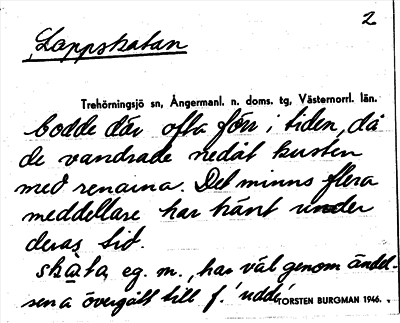 2
Lappskatan
Trehörningsjö sn, Ångermanl. n. doms. tg, Västernorrl. län.
bodde där ofta förr i tiden, då
de vandrade nedåt kusten
med renarna. Det minns flera
meddelare har hänt under
deras tid.
skata, eg. m., har väl genom ändel-
sen a övergått till f. 'udde'
TORSTEN BURGMAN 1946.